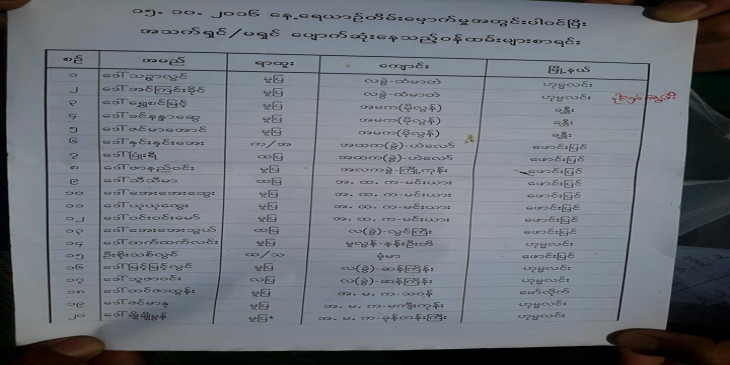 ၁၅. ၁၀. ၂၀၁၆ နေ့ ရေယာဉ်တိမ်းမှောက်မှုအတွင်းပါဝင်ပြီး
အသက်ရှင်/မရှင် ပျောက်ဆုံးနေသည့်ဝန်ထမ်းများစာရင်း
စဉ် အမည် ရာထူး ကျောင်း မြို့နယ်
၁ ဒေါ်သဉ္ဇာလွင် မူပြ လခွဲ-ထံမာတဲ ဟုမ္မလင်း
၂ ဒေါ်အင်ကြင်းခိုင် မူပြ လခွဲ-ထံမာတဲ ဟုမ္မလင်း
၃ ဒေါ်ရွှေစင်မြင့် မူပြ အမက(မိုလွန်) ခန္တီး
၄ ဒေါ်ခင်နန္ဒာဆွေ မူပြ အမက(မိုလွန်) ခန္တီး
၅ ဒေါ်ဇင်မာအောင် မူပြ အမက(မိုလွန်) ခန္တီး
၆ ဒေါ်နှင်းနှင်းအေး က/အ အထက(ခွဲ)-ဟံလော် ဖောင်းပြင်
၇ ဒေါ်ဖြူးရီ ထပြ အထက(ခွဲ)-ဟံလော် ဖောင်းပြင်
၈ ဒေါ်ဇာနည်ဝင်း မူပြ အလကခွဲ-ကြို့ကုန်း ဖောင်းပြင်
၉ ဒေါ်သီသီမာ ထပြ အ. ထ. က-မင်းယား ဖောင်းပြင်
၁၀ ဒေါ်အေးအေးထွေး မူပြ အ. ထ. က-မင်းယား ဖောင်းပြင်
၁၁ ဒေါ်ယုယုထွေး မူပြ အ. ထ. က-မင်းယား ဖောင်းပြင်
၁၂ ဒေါ်ဝင်းဝင်းမော် မူပြ အ. ထ. က-မင်းယား ဖောင်းပြင်
၁၃ ဒေါ်အေးအေးသွယ် ထပြ လ(ခွဲ)-လွင်ကြီး ဖောင်းပြင်
၁၄ ဒေါ်ထက်ထက်လင်း မူပြ မူလွန်-နန်းဦးတိ ဟုမ္မလင်း
၁၅ ဦးစိုးသစ်လွင် ထ/သ မုံမာ ဖောင်းပြင်
၁၆ ဒေါ်မြင့်မြင့်လွင် မူပြ လ(ခွဲ)-ဆန်ကြိန်း ဟုမ္မလင်း
၁၇ ဒေါ်သူဇာဝင်း လပြ လ(ခွဲ)-ဆန်ကြိန်း ဟုမ္မလင်း
၁၈ ဒေါ်တင်ဇာထွန်း မူပြ အ. မ. က-သဝန် မော်လိုက်
၁၉ ဒေါ်ဇင်မာနု မူပြ အ. မ. က-မကျီးကုန်း ဟုမ္မလင်း
၂၀ ဒေါ်ချိုချိုမွန် မူပြ အ. မ. က-ခုန်တန်းကြီး ဟုမ္မလင်း